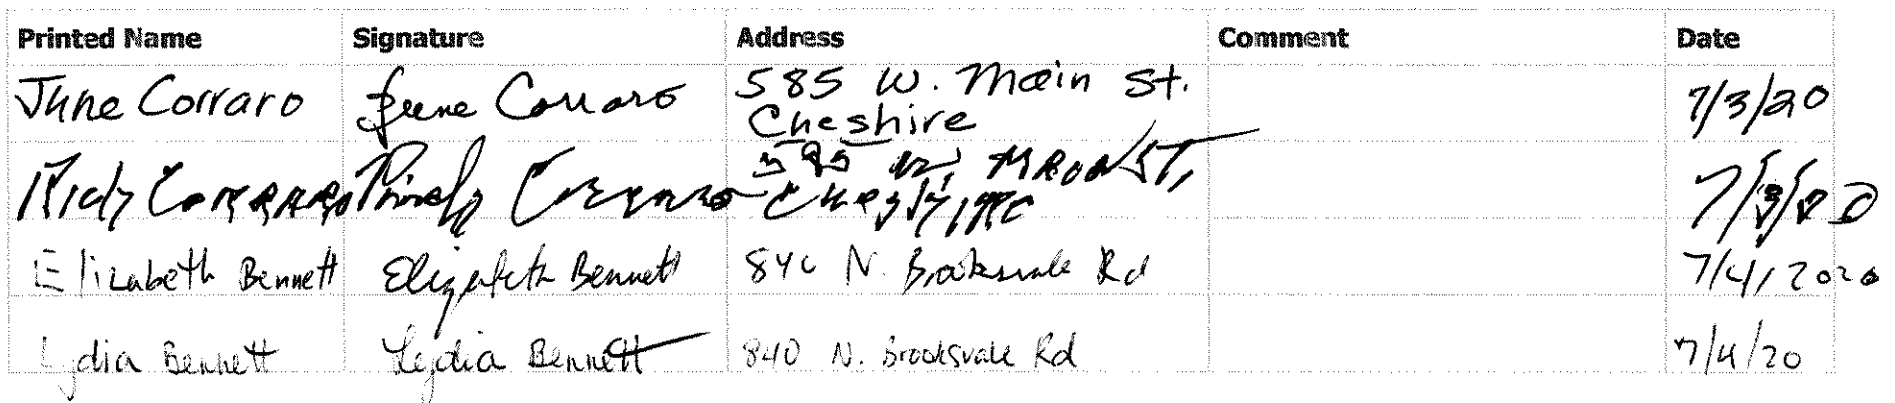 Printed Name Signature Address Comment Date
June Corraro June Corraro 585 W. Main St. 7/3/20
Cheshire
Rich Corraro Rich Corraro 585 W. Main St, 7/3/20
Cheshire
Elizabeth Bennett Elizabeth Bennett 840 N. Brooksvale Rd 7/4/2020
Lydia Bennett Lydia Bennett 840 N. Brooksvale Rd 7/4/20